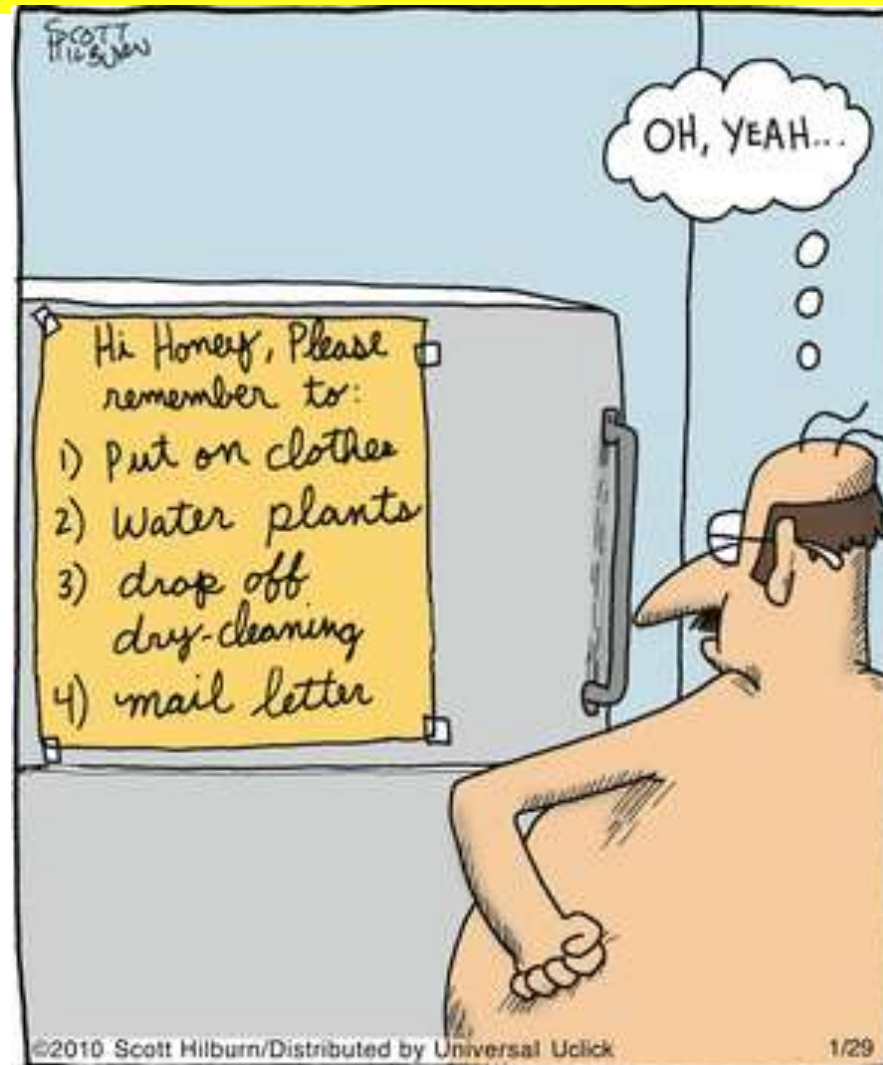 SCOTT
HILBURN
OH, YEAH...
Hi Honey, Please
remember to:
1) Put on clothes
2) Water plants
3) drop off
dry-cleaning
4) mail letter
©2010 Scott Hilburn/Distributed by Universal Uclick
1/29